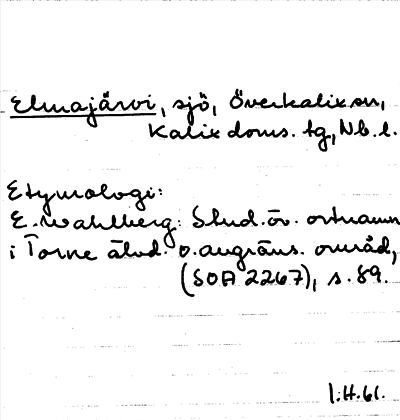 Elmajärvi, sjö, Överkalix sn,
Kalix doms. tg, Nb. l.
Etymologi:
E. Wahlberg: Stud. öv. ortnamn
i Torne älvd. o. angräns. områd,
(SOA 2267), s. 89.
I.H. 61.